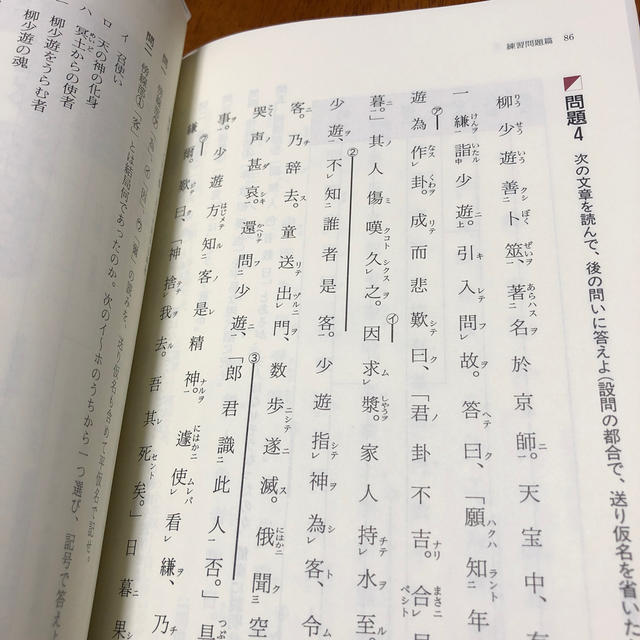 練習問題篇 86
問題4 次の文章を読んで、後の問いに答えよ(設問の都合で、送り仮名を省いた
柳少遊善卜筮、著名於京師。天宝中、
一縑詣少遊。引入問故。答曰、「願知年
遊為作卦。成而悲歎曰、「君卦不吉。合
暮。」其人傷嘆久之。因求漿。家人持水至。
少遊、不知誰者是客。少遊指神為客、令
客。乃辞去。童送出門、数歩遂滅。俄聞空
哭声甚哀。還問少遊、「郎君識此人否。」具
事。少遊方知客是精神。遽使看縑、乃
縑爾。歎曰、「神捨我去。吾其死矣。」日暮果
問二 傍線部①「客」とは結局何であったのか。次のイ~ホのうちから一つ選び、記号で答えよ
イ 召使い
ロ 天の神の化身
ハ 冥土からの使者
柳少遊をうらむ者
柳少遊の魂